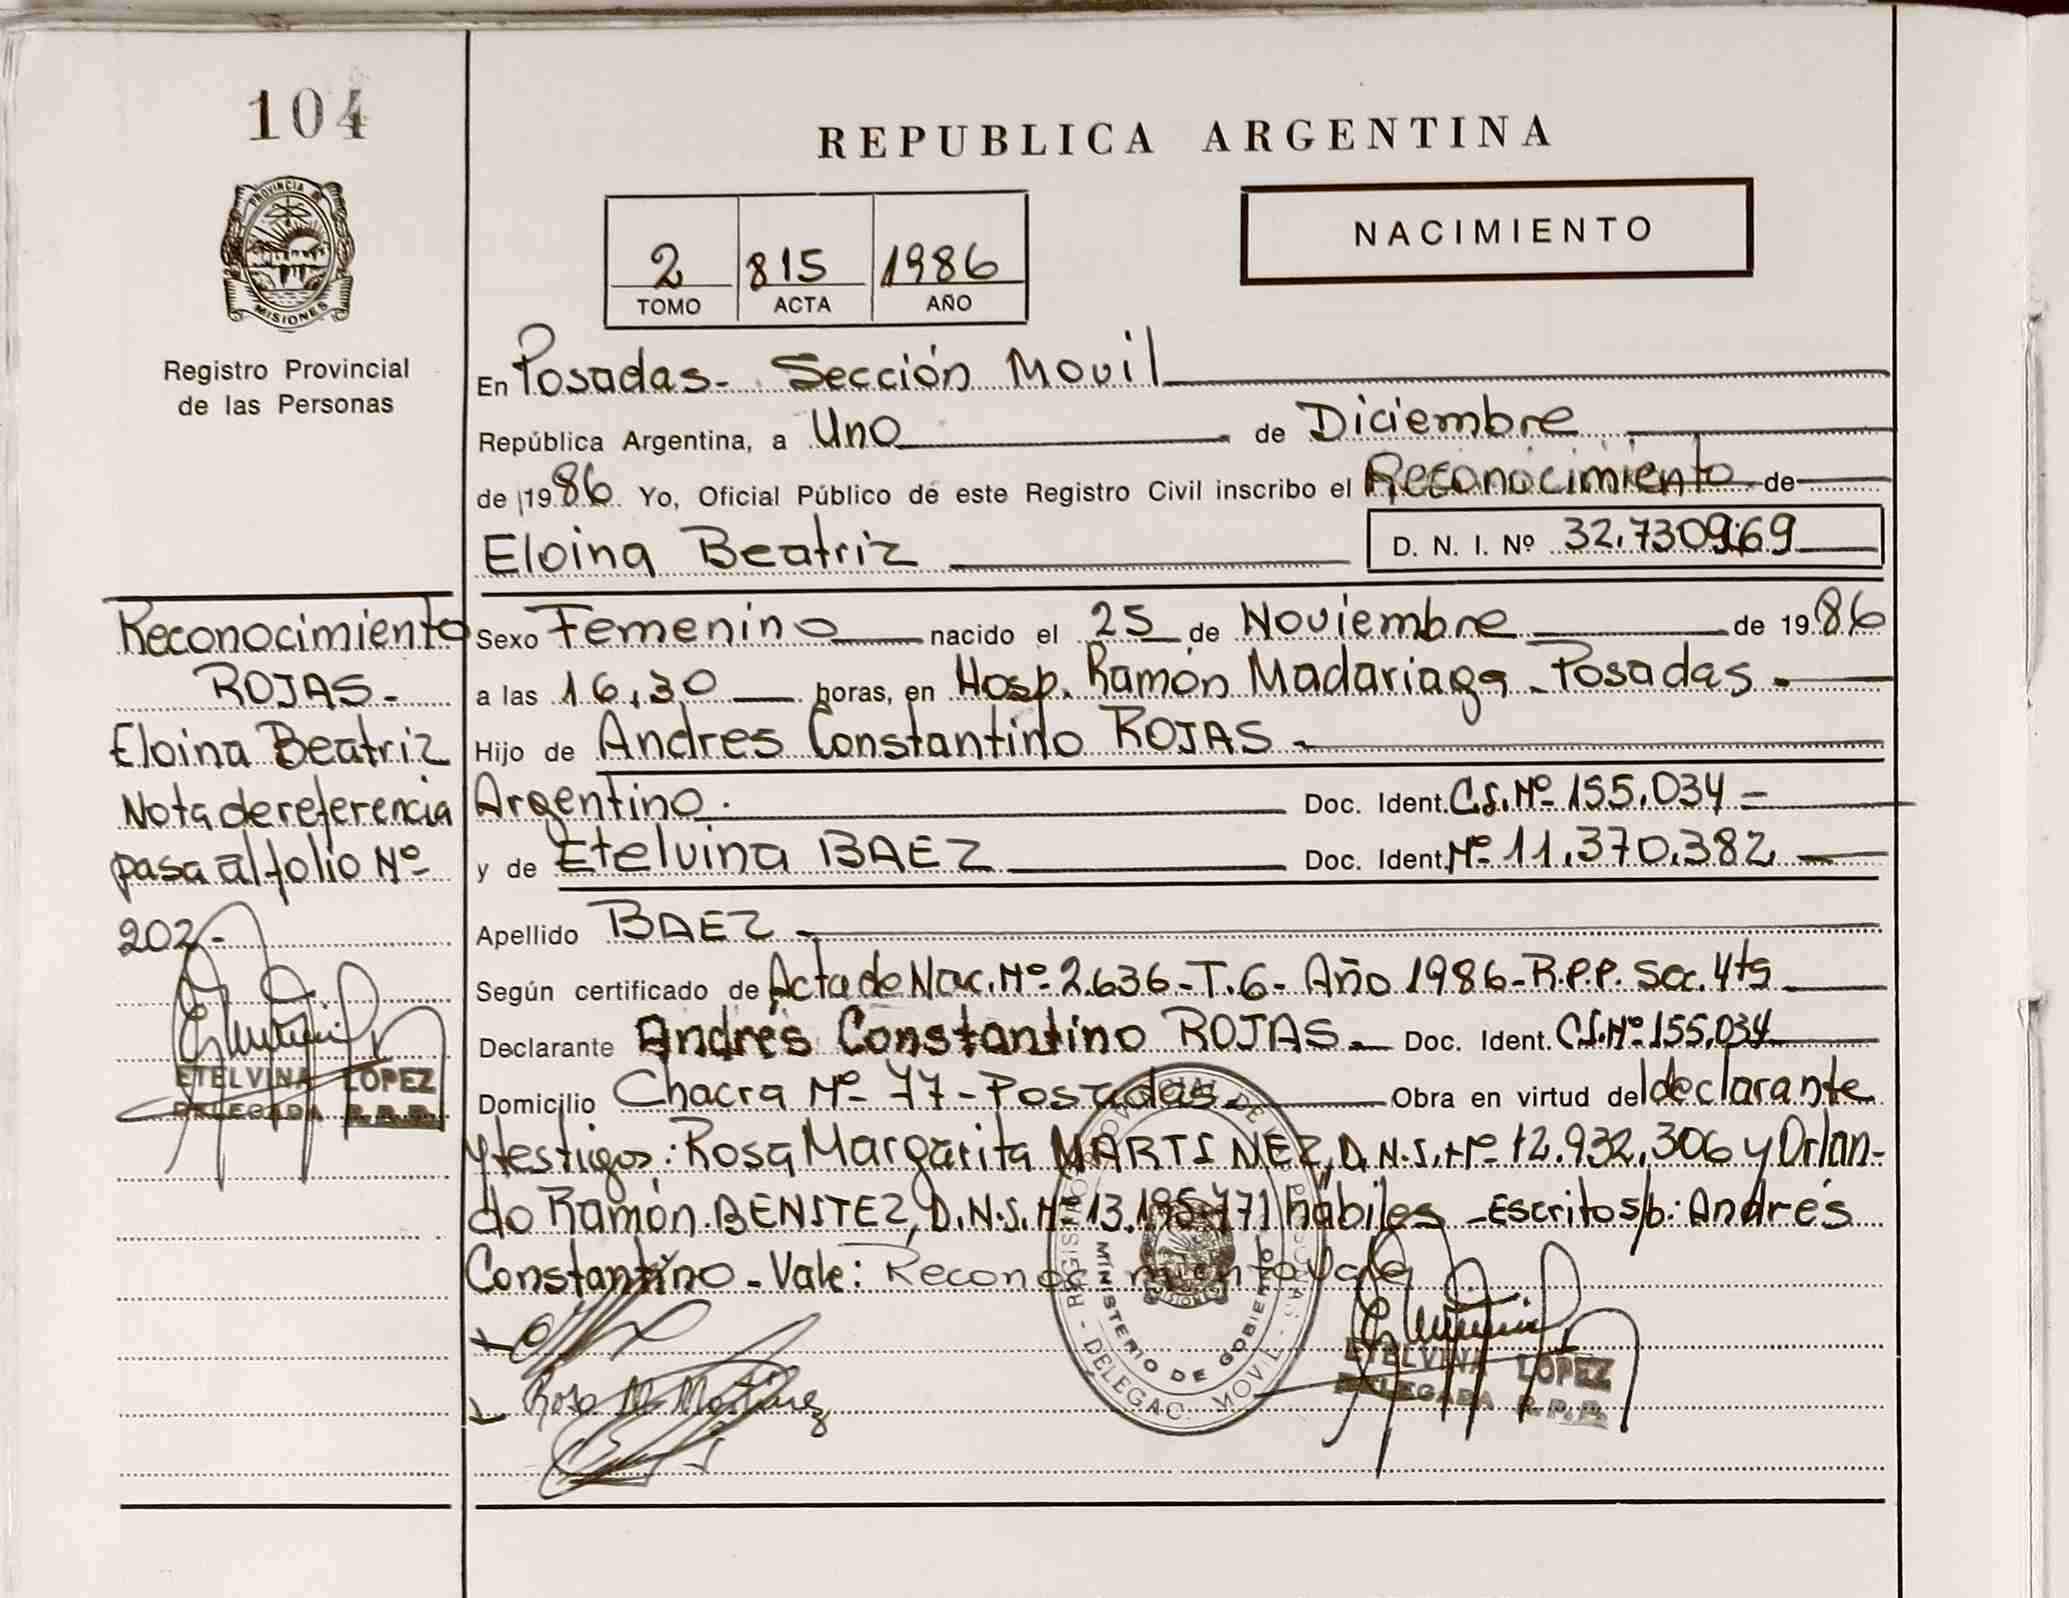 104
PROVINCIA DE
MISIONES
Registro Provincial
de las Personas
REPUBLICA ARGENTINA
2 815 1986
TOMO ACTA AÑO
NACIMIENTO
En Posadas - Sección Movil
República Argentina, a Uno de Diciembre
de 1986. Yo, Oficial Público de este Registro Civil inscribo el Reconocimiento de
Eloina Beatriz D. N. I. Nº 32.730969
Sexo Femenino nacido el 25 de Noviembre de 1986
a las 16,30 horas, en Hosp. Ramón Madariaga - Posadas -
Hijo de Andres Constantino ROJAS -
Argentino. Doc. Ident. C.I. Nº 155.034 =
y de Etelvina BAEZ Doc. Ident. Nº 11.370.382
Apellido BAEZ -
Según certificado de Acta de Nac. Nº 2.636 - T. 6 - Año 1986 - R.P.P. Sec. 4ta
Declarante Andrés Constantino ROJAS. - Doc. Ident. C.I. Nº 155.034
Domicilio Chacra Nº 77 - Posadas. - Obra en virtud del declarante
y testigos: Rosa Margarita MARTINEZ, D.N.I. Nº 12.932.306 y Orlan-
do Ramón BENITEZ, D.N.I. Nº 13.195.771 hábiles - Escrito s/b: Andrés
Constantino - Vale: Reconocimiento Vale
Rosa M Martinez
REGISTRO PROVINCIAL DE LAS PERSONAS - DELEGAC. MOVIL -
MINISTERIO DE GOBIERNO
MISIONES
ETELVINA LOPEZ
DELEGADA R.P.P.
Reconocimiento
ROJAS -
Eloina Beatriz
Nota de referencia
pasa al folio Nº
202 -
ETELVINA LOPEZ
DELEGADA R.P.P.